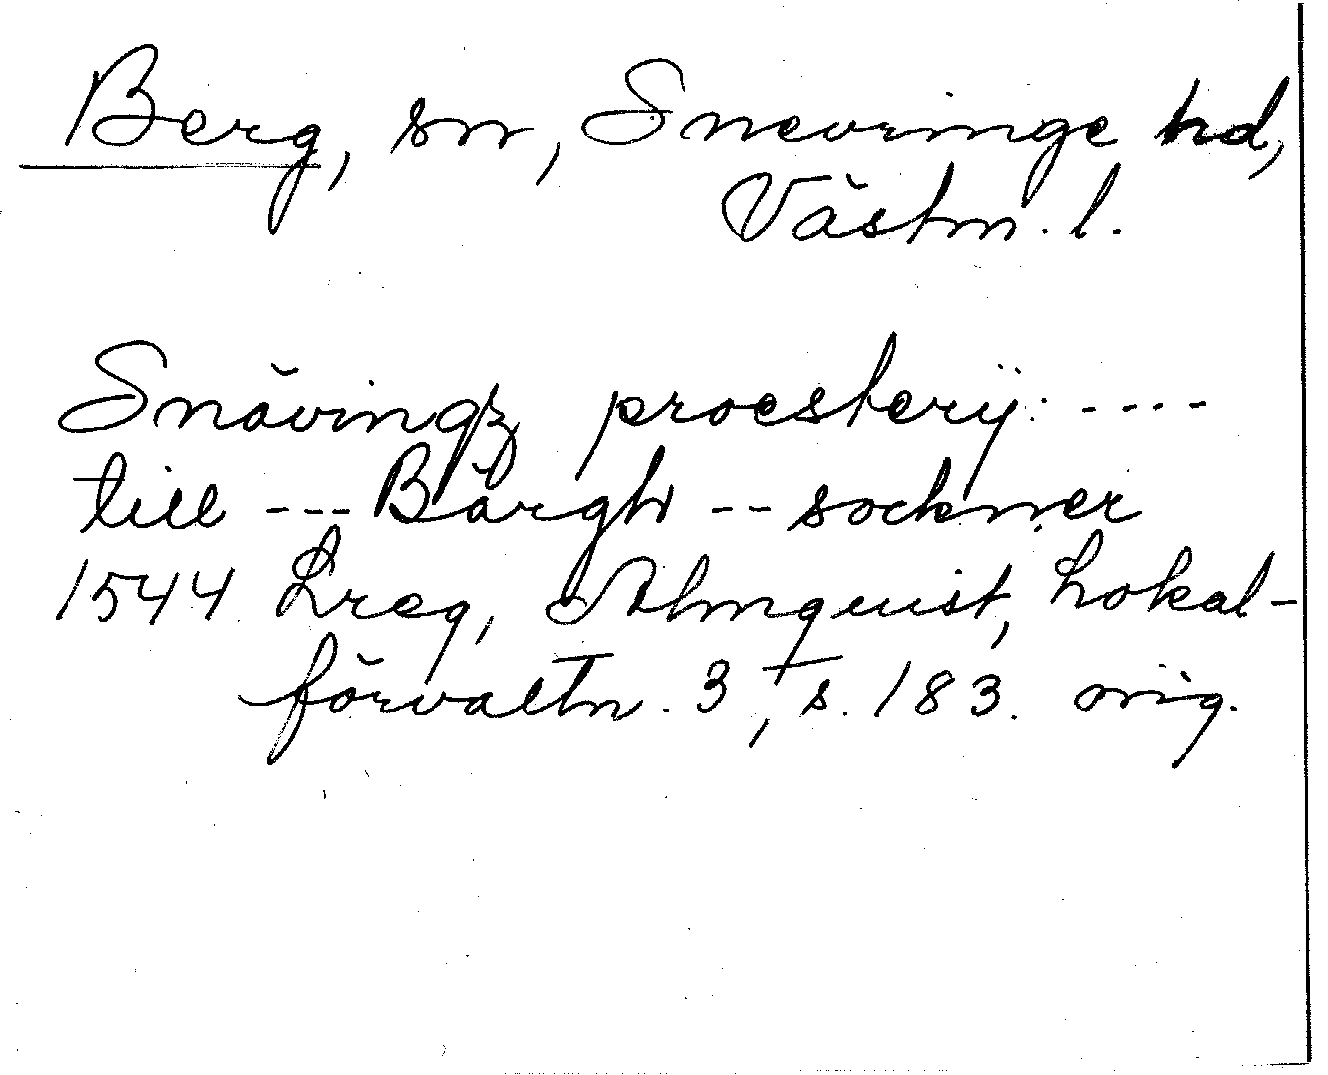 Berg, sn, Snevringe hd,
Västm. l.
Snävingz proesterij ----
till --- Bärgh -- sockner
1544 Lreg, Almquist, Lokal-
förvaltn. 3, s. 183. orig.